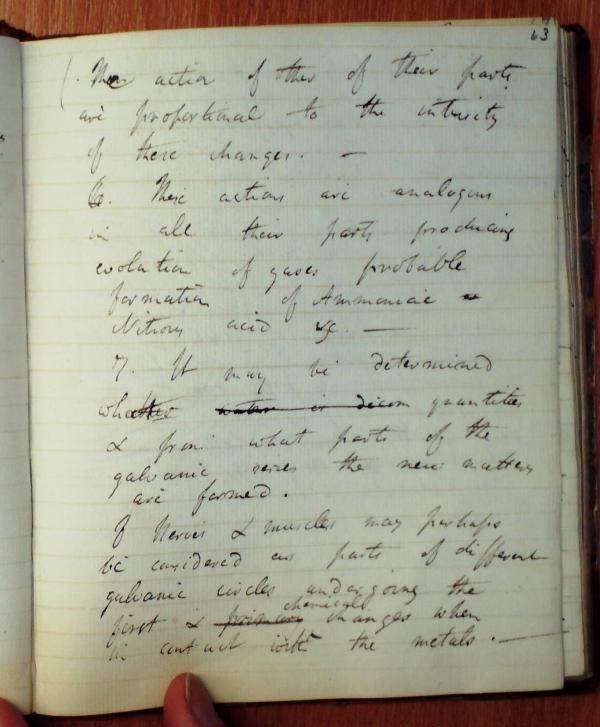 63
The action of other of their parts
are proportional to the intensity
of these changes. —
6. These actions are analogous
in all their parts producing
evolution of gases probable
formation of Ammoniac
Nitrous acid &c. —
7. It may be determined
what quantities
& from what parts of the
galvanic series the new matters
are formed.
Nerves & muscles may perhaps
be considered as parts of different
galvanic circles undergoing the
chemical
first & primary changes when
in contact with the metals. —